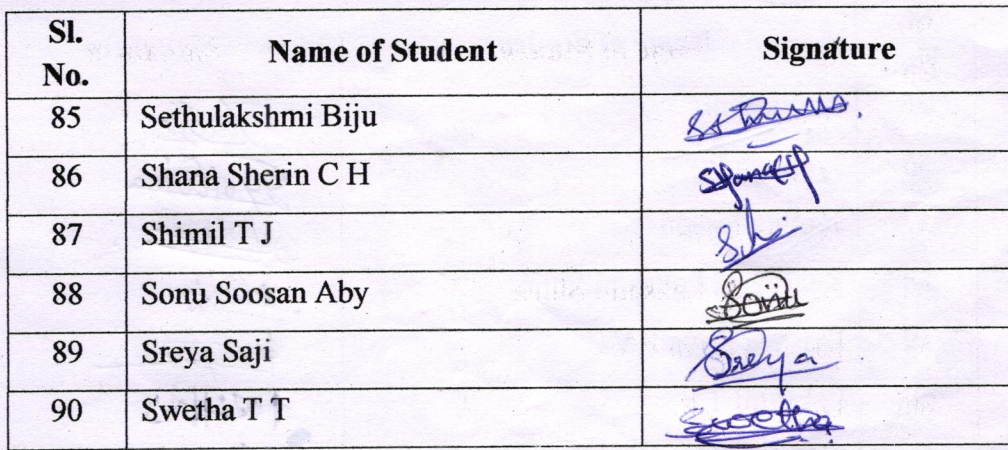 Sl. No. Name of Student Signature
85 Sethulakshmi Biju
86 Shana Sherin C H
87 Shimil T J
88 Sonu Soosan Aby Sonu
89 Sreya Saji Sreya
90 Swetha T T Swetha